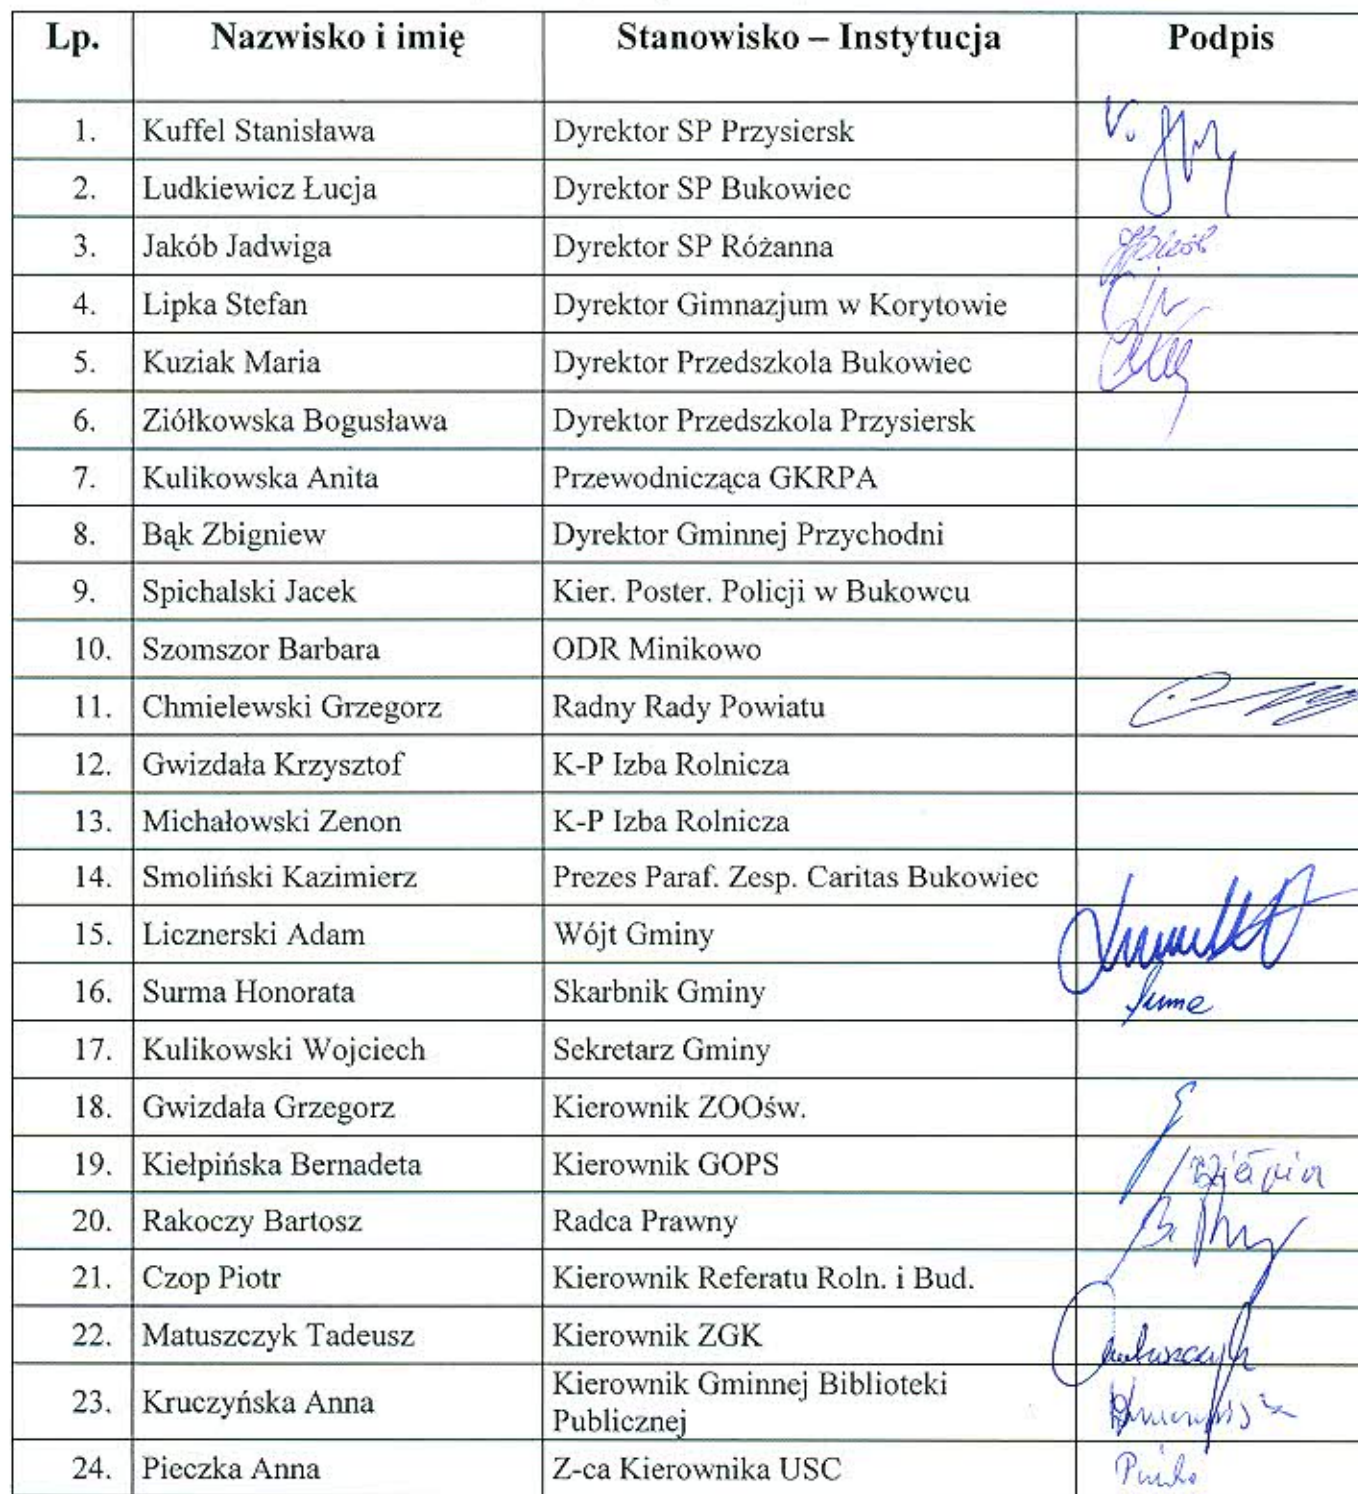 Lp. Nazwisko i imię Stanowisko – Instytucja Podpis
1. Kuffel Stanisława Dyrektor SP Przysiersk
2. Ludkiewicz Łucja Dyrektor SP Bukowiec
3. Jakób Jadwiga Dyrektor SP Różanna
4. Lipka Stefan Dyrektor Gimnazjum w Korytowie
5. Kuziak Maria Dyrektor Przedszkola Bukowiec
6. Ziółkowska Bogusława Dyrektor Przedszkola Przysiersk
7. Kulikowska Anita Przewodnicząca GKRPA
8. Bąk Zbigniew Dyrektor Gminnej Przychodni
9. Spichalski Jacek Kier. Poster. Policji w Bukowcu
10. Szomszor Barbara ODR Minikowo
11. Chmielewski Grzegorz Radny Rady Powiatu
12. Gwizdała Krzysztof K-P Izba Rolnicza
13. Michałowski Zenon K-P Izba Rolnicza
14. Smoliński Kazimierz Prezes Paraf. Zesp. Caritas Bukowiec
15. Licznerski Adam Wójt Gminy
16. Surma Honorata Skarbnik Gminy
17. Kulikowski Wojciech Sekretarz Gminy
18. Gwizdała Grzegorz Kierownik ZOOśw.
19. Kiełpińska Bernadeta Kierownik GOPS
20. Rakoczy Bartosz Radca Prawny
21. Czop Piotr Kierownik Referatu Roln. i Bud.
22. Matuszczyk Tadeusz Kierownik ZGK
23. Kruczyńska Anna Kierownik Gminnej Biblioteki
Publicznej
24. Pieczka Anna Z-ca Kierownika USC